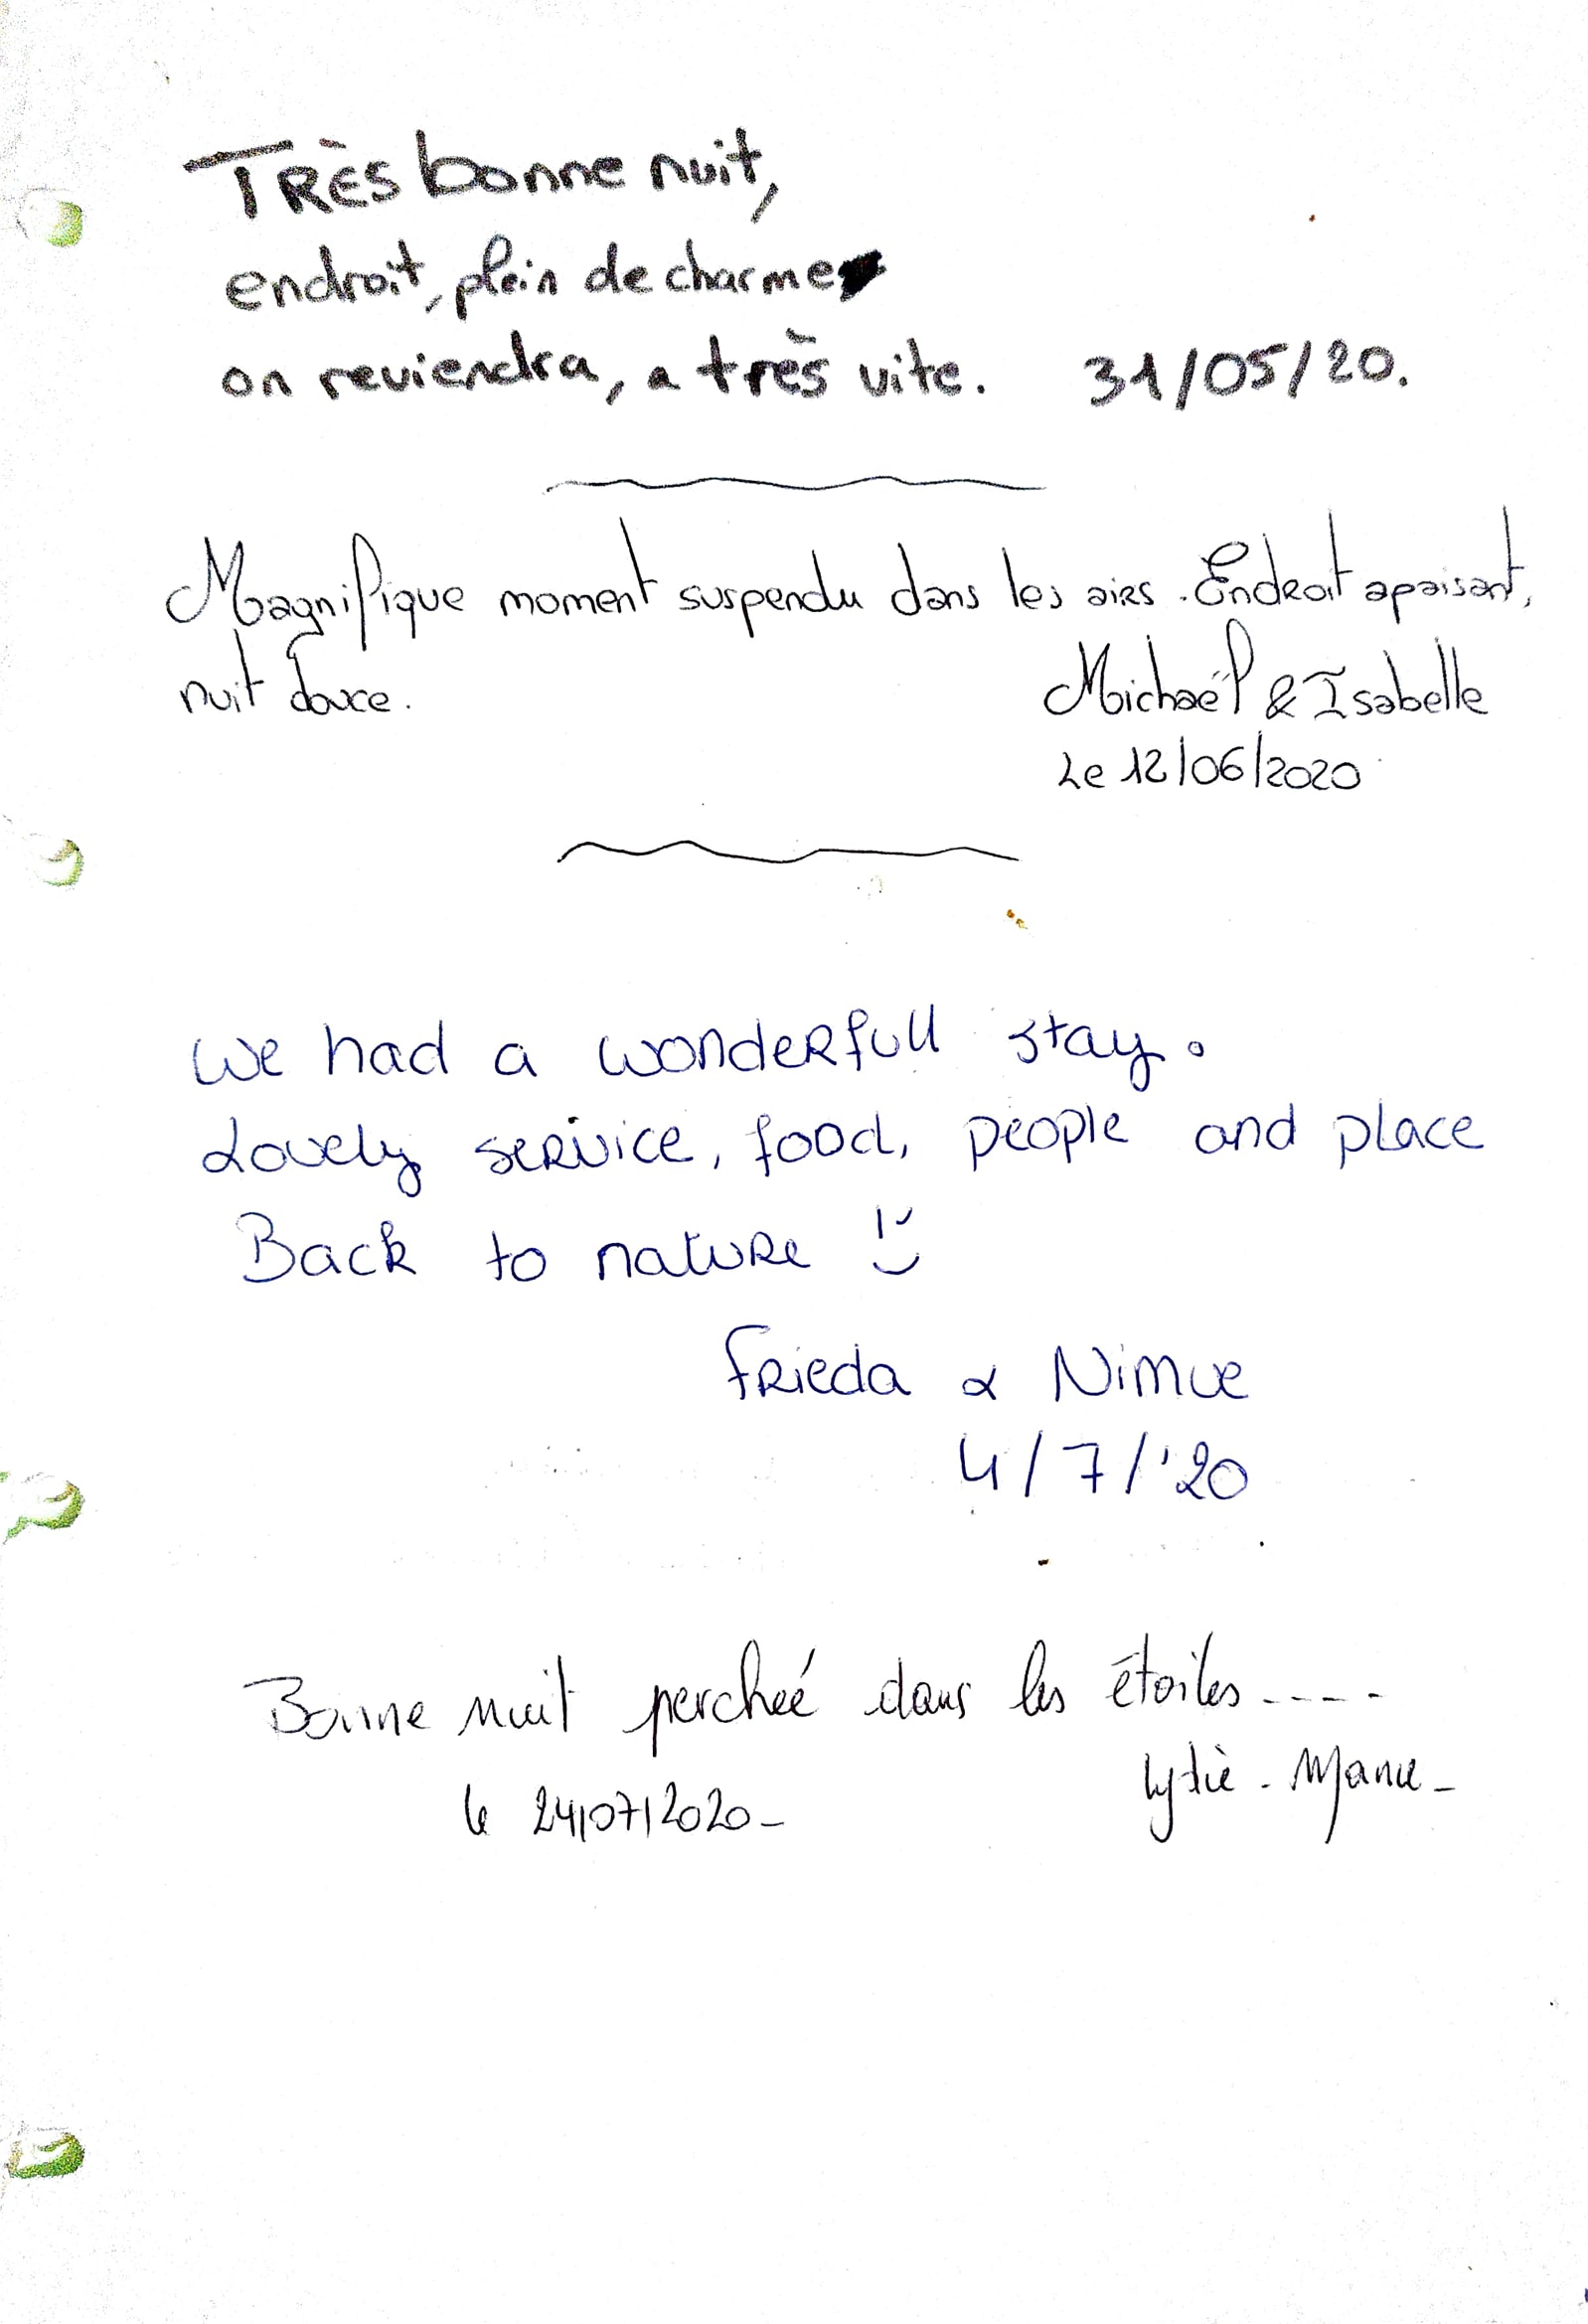 TRÈS bonne nuit,
endroit, plein de charme
on reviendra, a très vite. 31/05/20.
Magnifique moment suspendu dans les airs. Endroit apaisant,
nuit douce.
Michaël & Isabelle
Le 12/06/2020
We had a wonderfull stay.
Lovely service, food, people and place
Back to nature
Frieda & Nimue
4/7/'20
Bonne nuit perchée dans les étoiles ----
Lydie - Manu -
le 24/07/2020 -